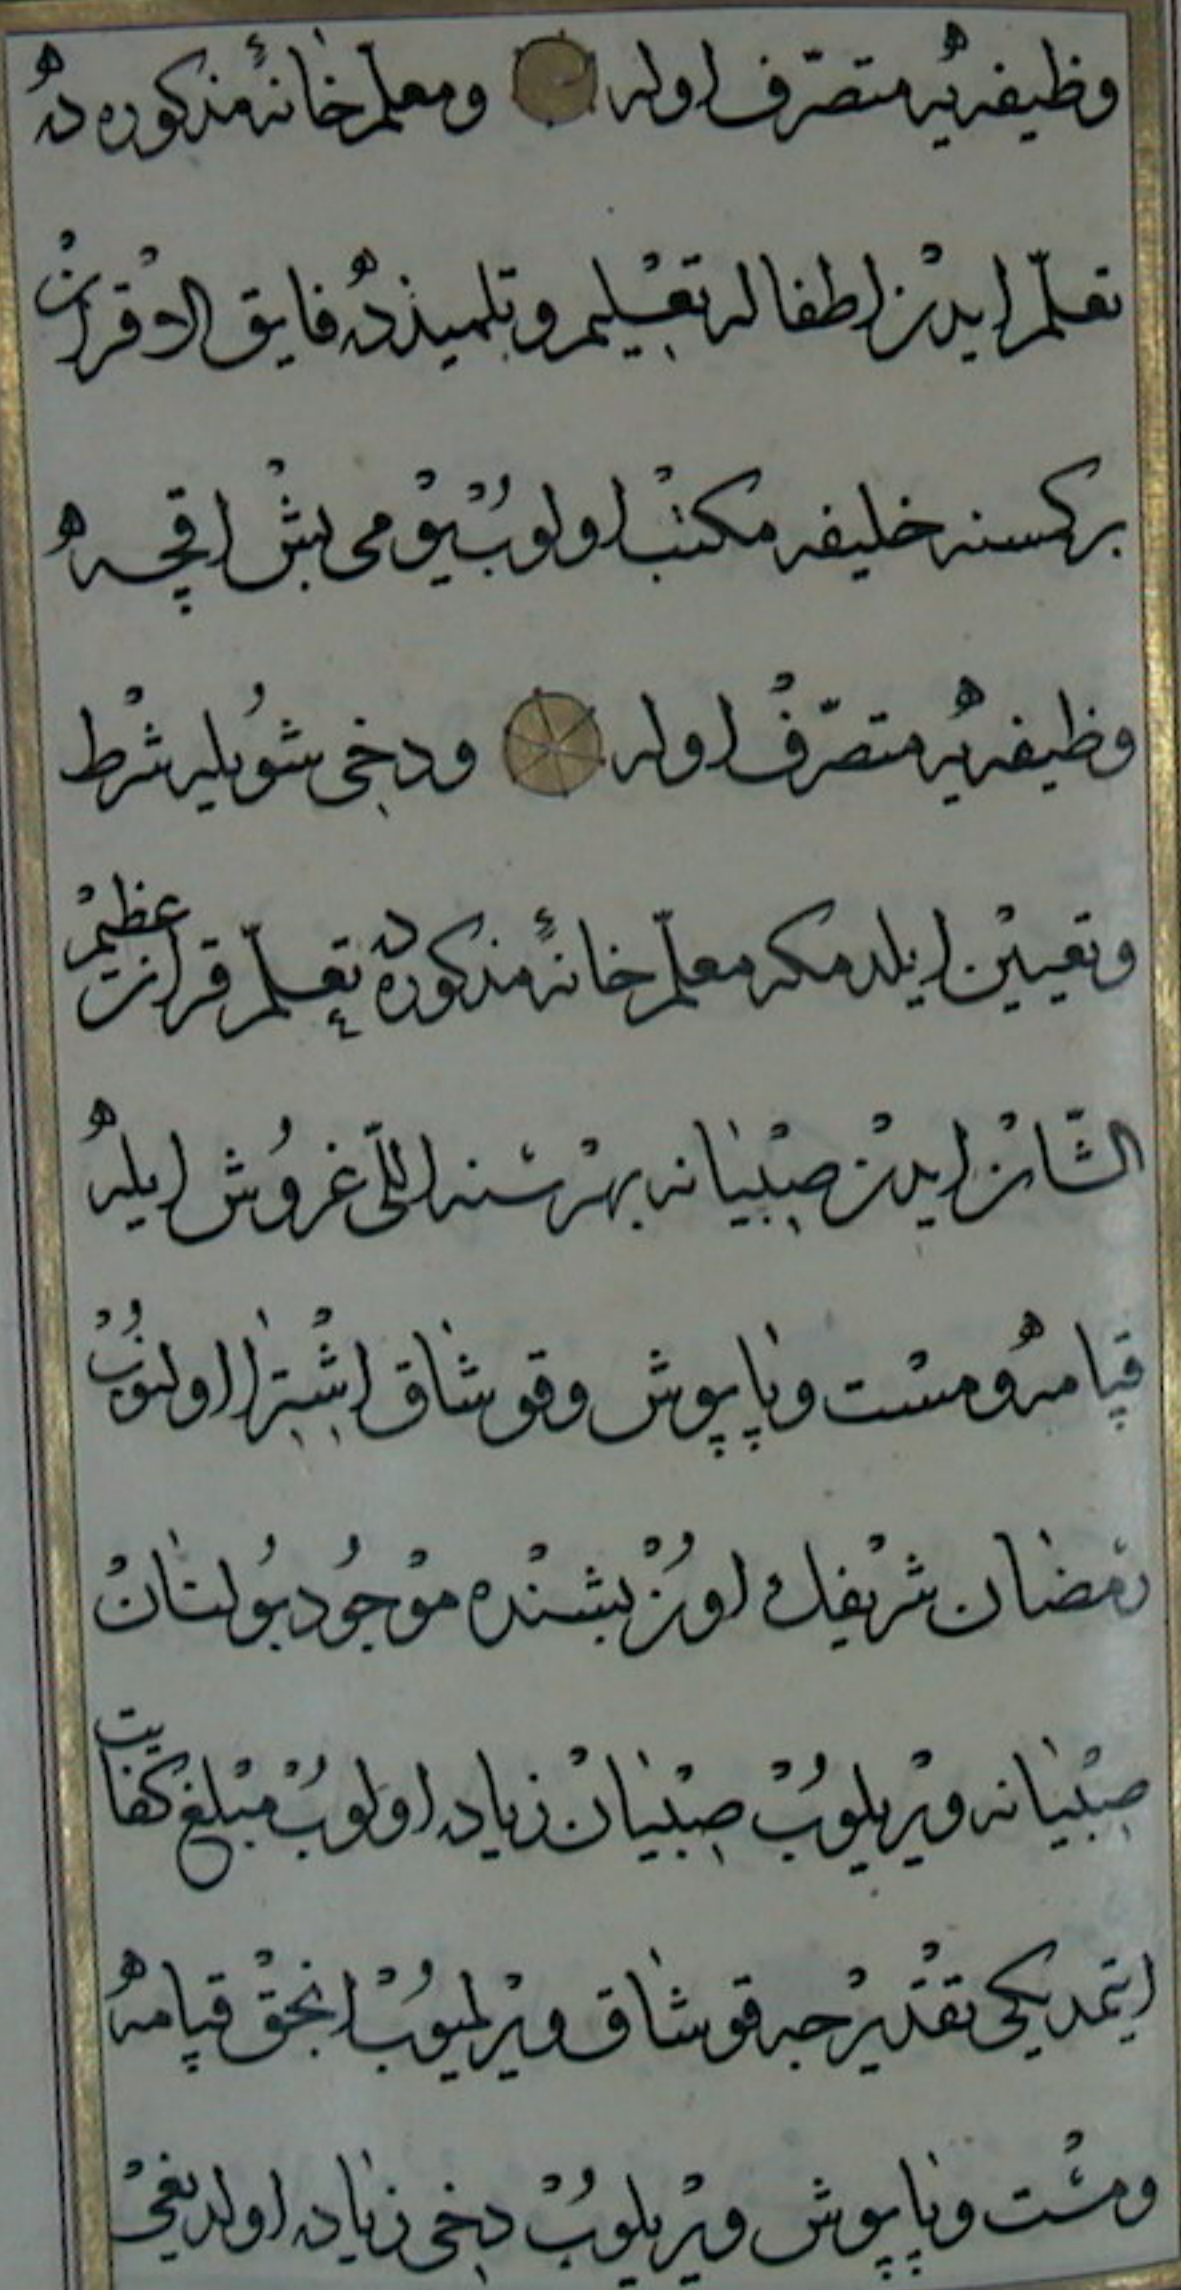 وظیفه‌یه متصرّف اوله ومعلّم خانهٔ مذکوره ده
تعلّم ایدن اطفاله تعلیم و تلمیذده فایق الاقران
بر کسنه خلیفه مکتب اولوب یومی بش اقچه
وظیفه‌یه متصرّف اوله و دخی شویله شرط
و تعیین ایلدمکه معلّم خانهٔ مذکوره ده تعلّم قران عظیم
الشّان ایدن صبیانه بهر سنه اللّی غروش ایله
قپامه و مست و پاپوش و قوشاق اشترا اولنوب
رمضان شریفك اون بشنده موجود بولنان
صبیانه ویریلوب صبیان زیاده اولوب مبلغ کفایت
ایتمدیکی تقدیرجه قوشاق ویرلمیوب انجق قپامه
و مست و پاپوش ویریلوب دخی زیاده اولدیغی